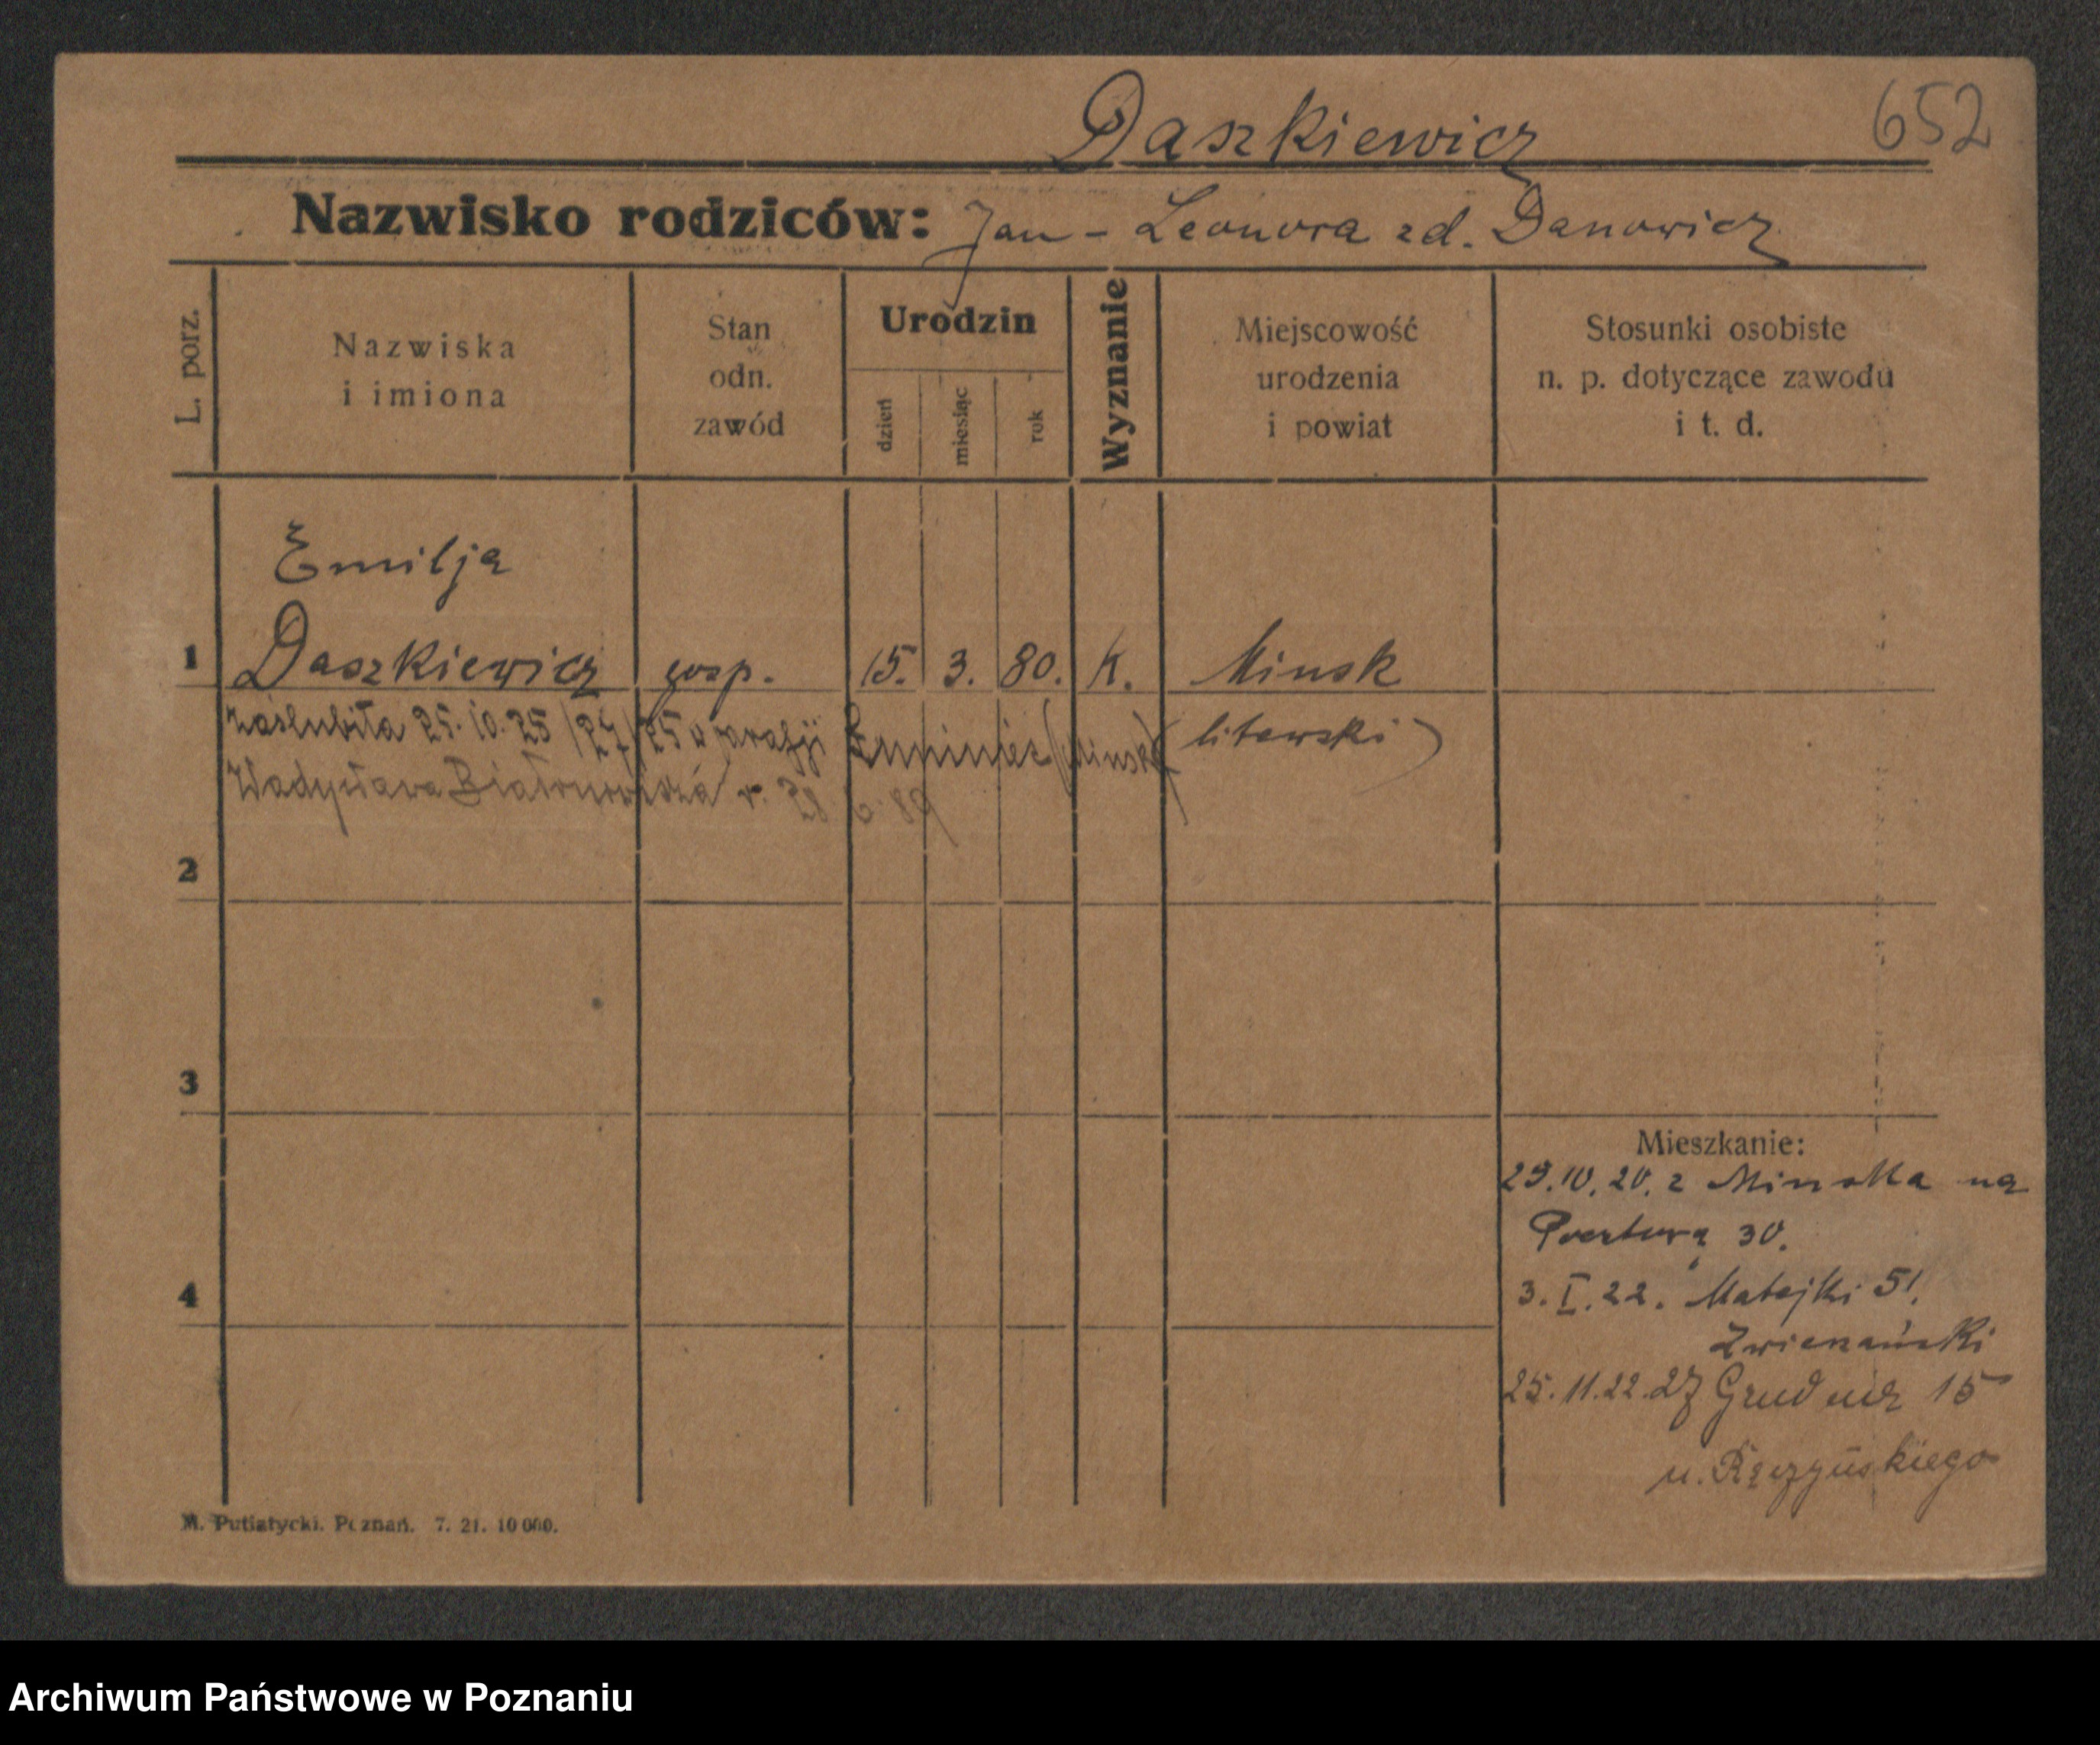 Daszkiewicz 652
Nazwisko rodziców: Jan - Leonora zd. Danowicz
L. porz.
Nazwiska
i imiona
Stan
odn.
zawód
Urodzin
dzień
miesiąc
rok
Wyznanie
Miejscowość
urodzenia
i powiat
Stosunki osobiste
n. p. dotyczące zawodu
i t. d.
Emilja
1 Daszkiewicz gosp. 15. 3. 80. K. Minsk
(litewski)
zaślubiła 25. 10. 25 /27/25 w parafji Łuniniec (Minsk)
Władysława r. 28. 6. 89
2
3
4
Mieszkanie:
29. 10. 20. z Minska na
Pocztową 30.
3. I. 22. Matejki 51.
25. 11. 22. 27 Grudnia 15
u. Rączyńskiego
M. Putiatycki. Poznań. 7. 21. 10 000.
Archiwum Państwowe w Poznaniu